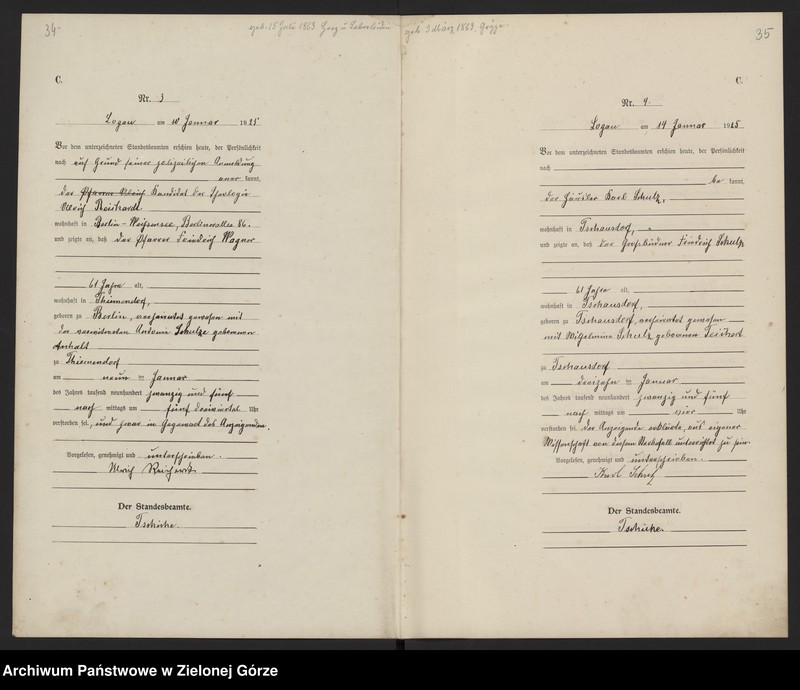 34
C.
Nr. 3
Logau am 10 Januar 1925
Vor dem unterzeichneten Standesbeamten erschien heute, der Persönlichkeit
nach auf Grund seiner polizeilichen Anmeldung
kannt,
der Kandidat der Theologie
Ulrich Reichardt
wohnhaft in Berlin-Weißensee, Berliner Allee 86.
und zeigte an, daß der Pfarrer Friedrich Wagner
61 Jahre alt,
wohnhaft in Thiemendorf,
geboren zu Berlin, verheiratet gewesen mit
der verwitweten Schulze geborenen
Anhalt
zu Thiemendorf
am neun ten Januar
des Jahres tausend neunhundert zwanzig und fünf
nach mittags um fünf dreiviertel Uhr
verstorben sei, und zwar in Gegenwart des Anzeigenden.
Vorgelesen, genehmigt und unterschrieben.
Ulrich Reichardt
Der Standesbeamte.
Tschirke.
35
C.
Nr. 4.
Logau am 14 Januar 1925
Vor dem unterzeichneten Standesbeamten erschien heute, der Persönlichkeit
nach
be kannt,
der Häusler Karl Schulz,
wohnhaft in Tschausdorf,
und zeigte an, daß der Friedrich Schulz
61 Jahre alt,
wohnhaft in Tschausdorf,
geboren zu Tschausdorf, verheiratet gewesen
mit Wilhelmine Schulz geborenen Teichert
zu Tschausdorf
am dreizehn ten Januar
des Jahres tausend neunhundert zwanzig und fünf
nach mittags um vier Uhr
verstorben sei. Der Anzeigende erklärte, aus eigener
Wissenschaft von diesem Sterbefall unterrichtet zu sein.
Vorgelesen, genehmigt und unterschrieben.
Karl Schulz
Der Standesbeamte.
Tschirke.
Archiwum Państwowe w Zielonej Górze